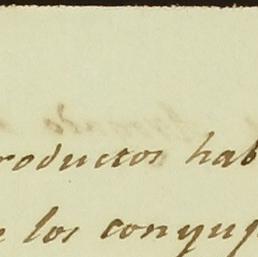 roductos hab
e los conyug